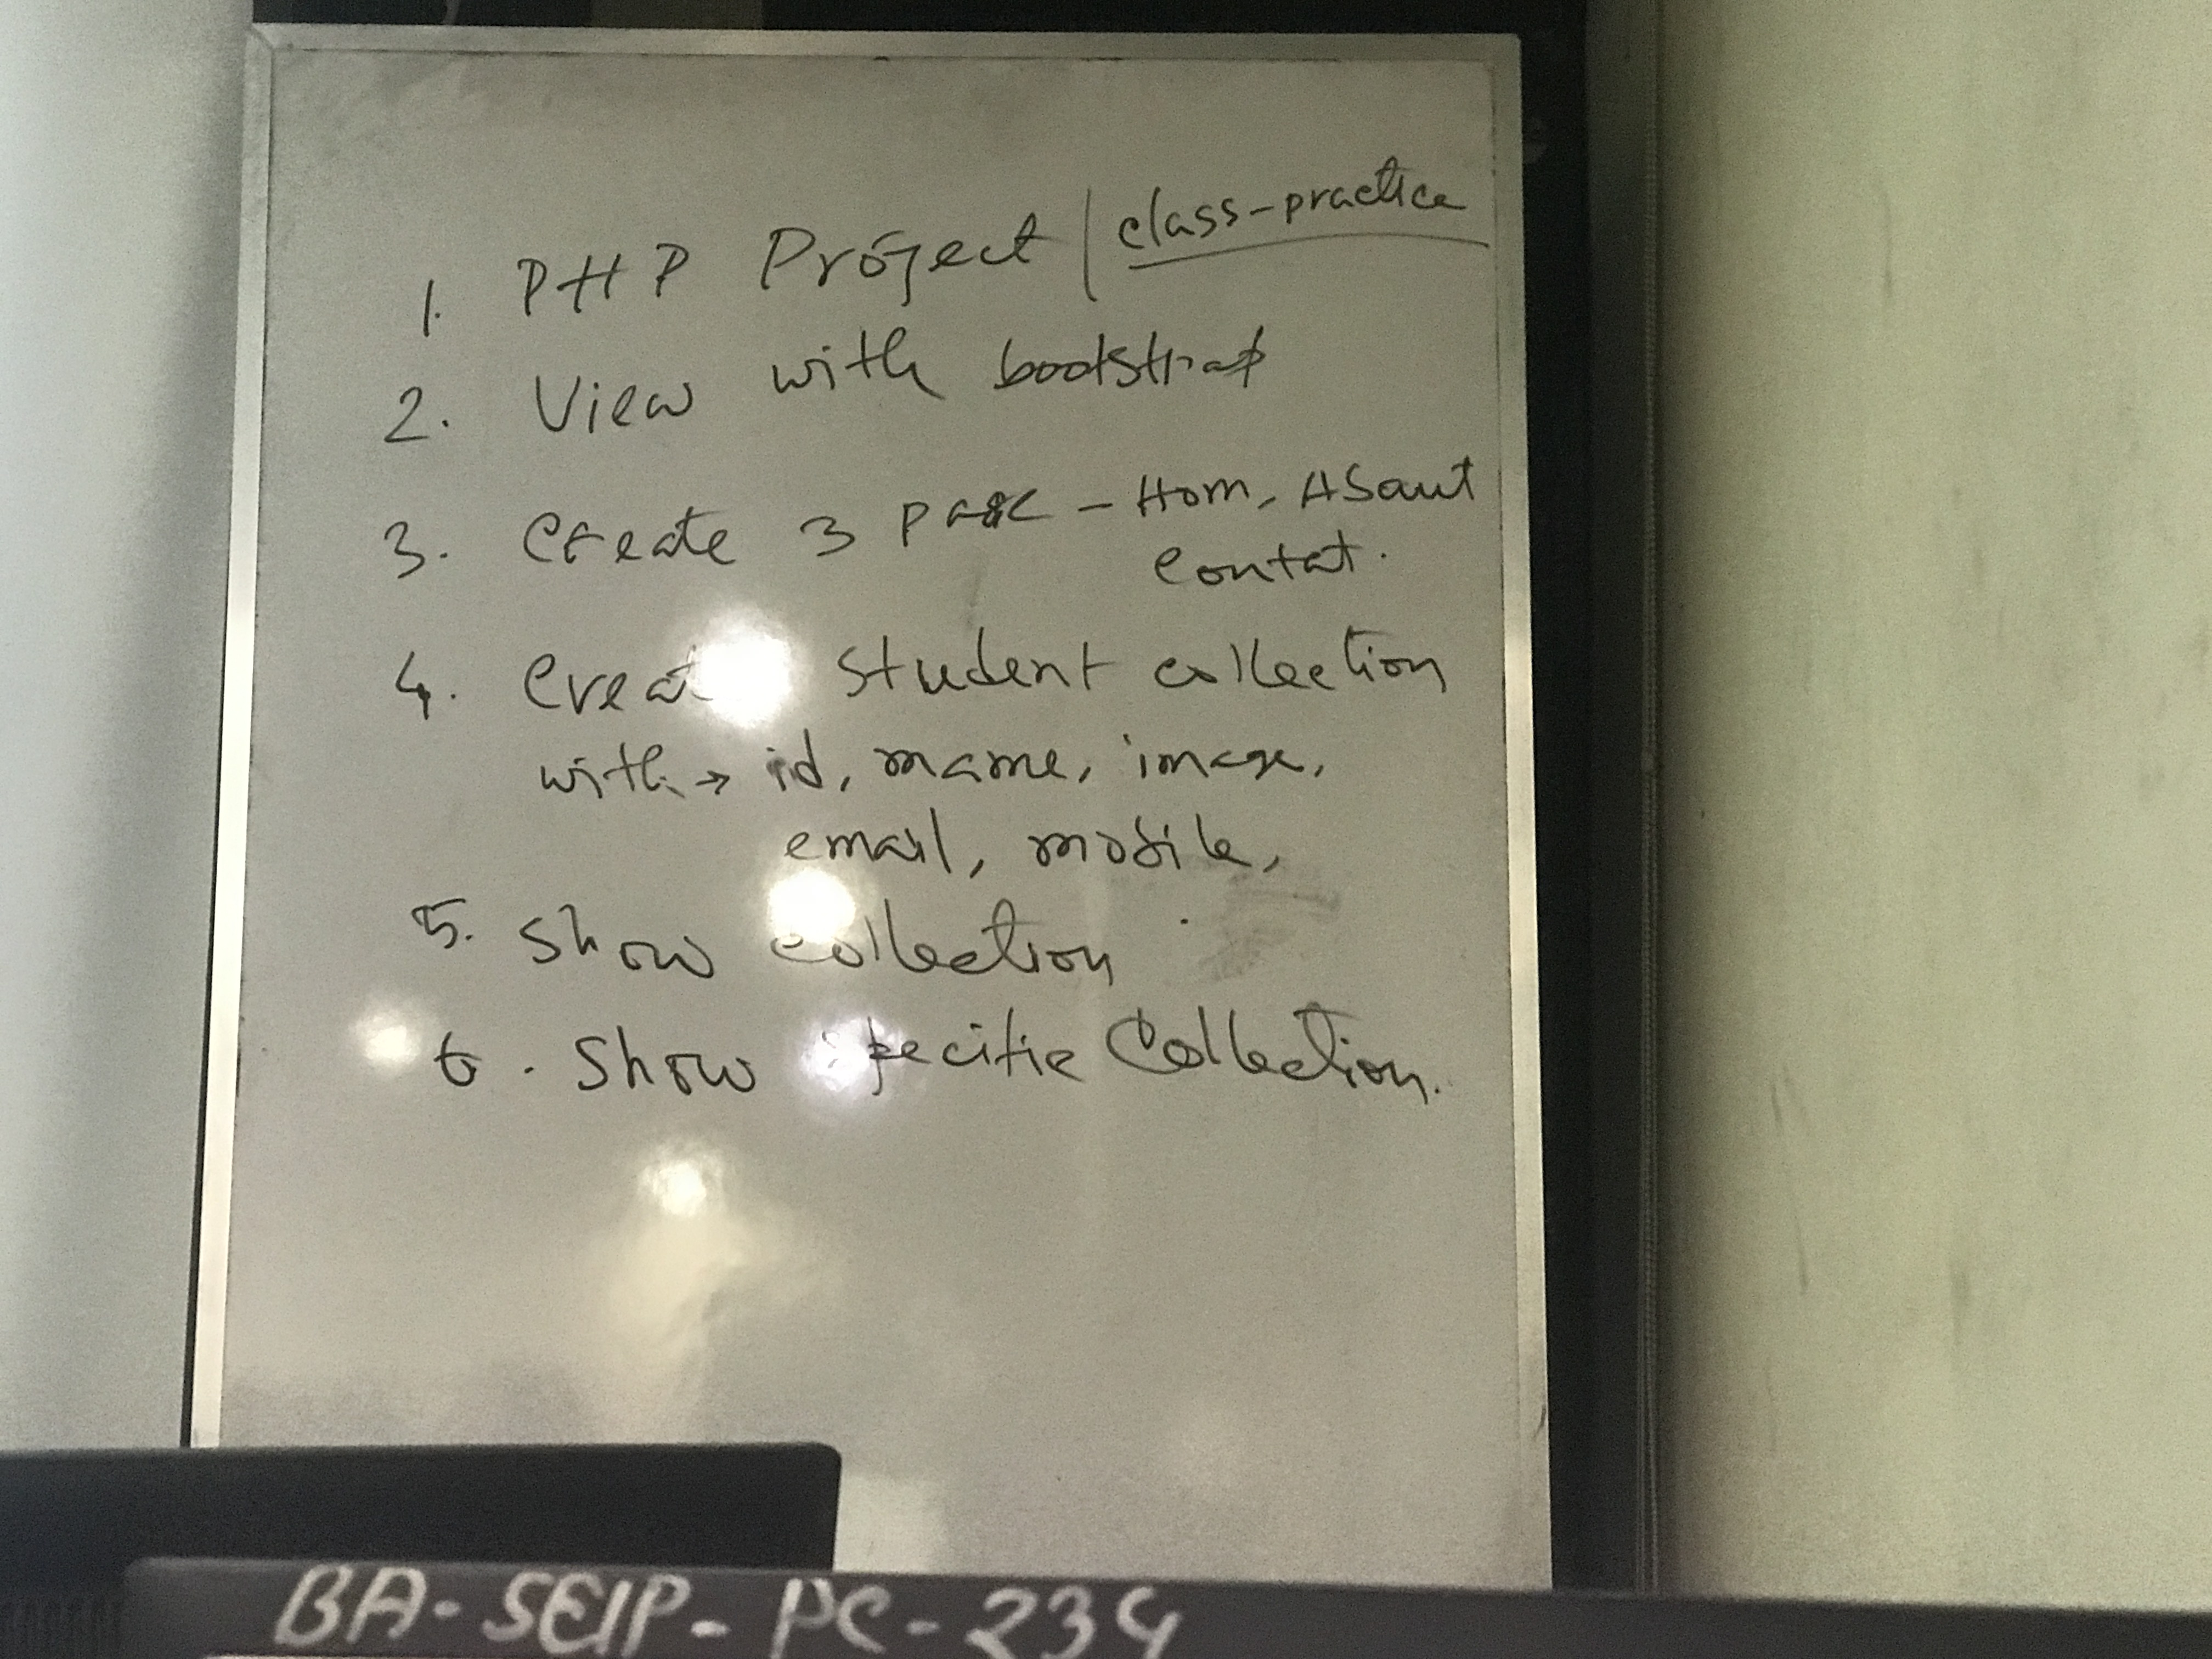 1. PHP Project / class-practice
2. View with bootstrap
3. Create 3 page - Hom, About
Contat.
4. Creat student collection
with → id, name, image,
email, mobile,
5. Show collection
6. Show specific Collection.
BA-SEIP-PC-234